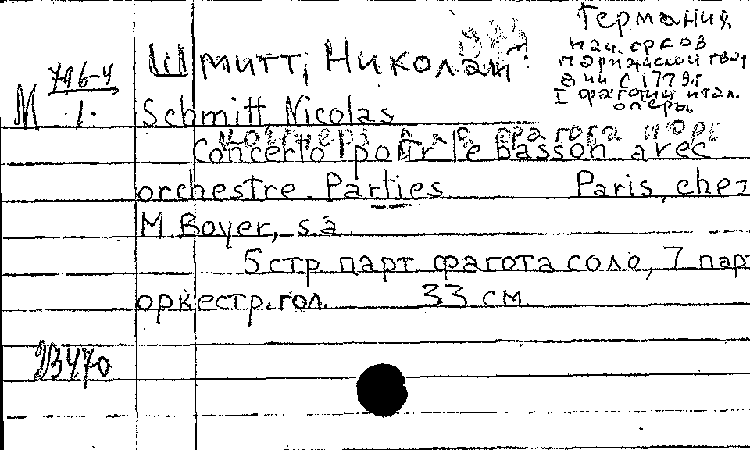 Германия
нач. орков
парижской гвар
дии с 1779 г
I фагот итал.
оперы
Шмитт, Николай
М 796-4
1.
Schmitt Nicolas
Концерт для фагота и орк
Concerto pour le basson avec
orchestre. Parties Paris, chez
M. Boyer, s.a
5 стр парт. фагота соло, 7 парт
оркестр. гол. 33 см
23470